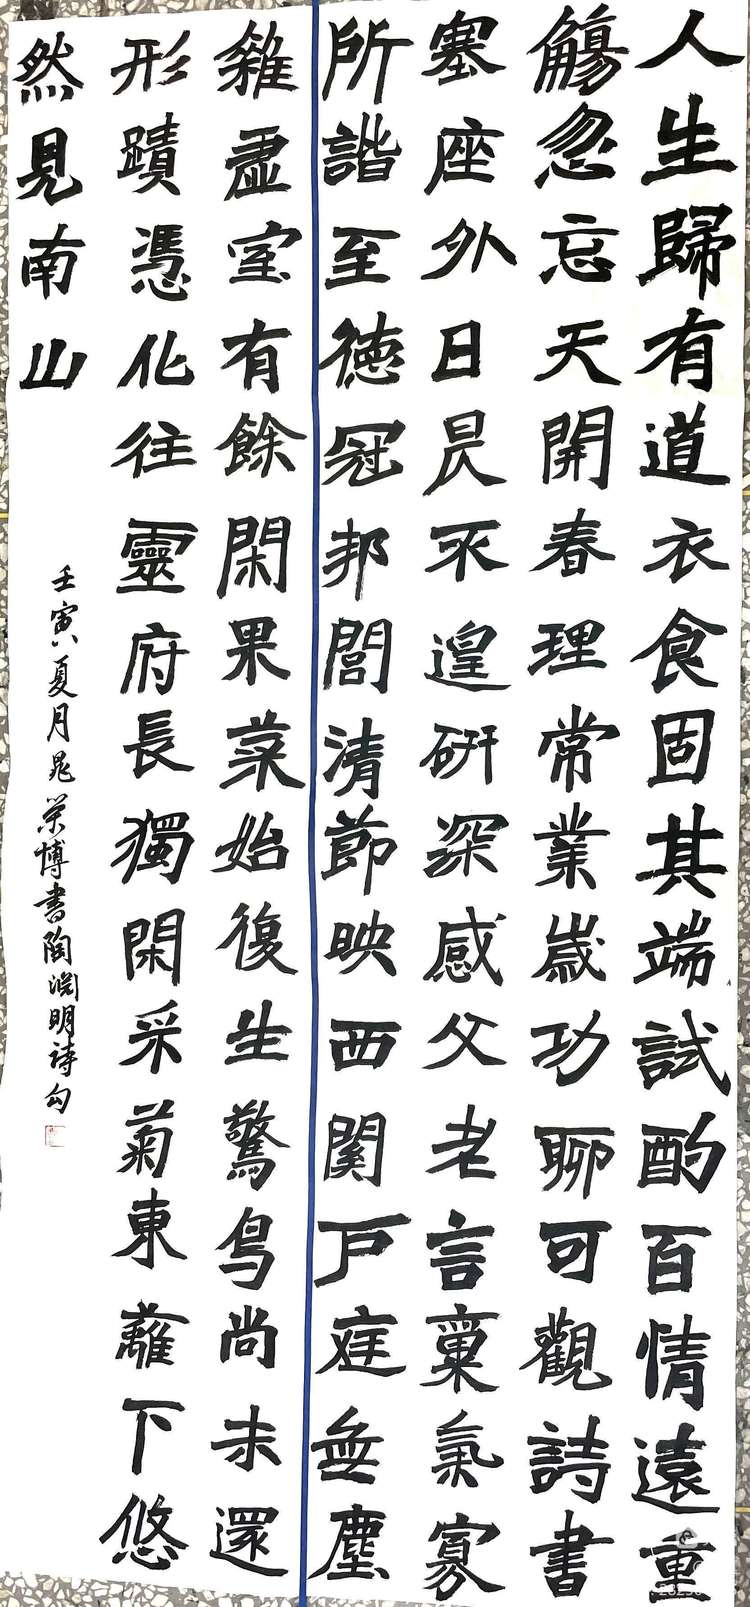 人生歸有道衣食固其端試酌百情遠重
觴忽忘天開春理常業歲功聊可觀詩書
塞座外日昃不遑研深感父老言稟氣寡
所諧至德冠邦閭清節映西關戶庭無塵
雜虛室有餘閑果菜始復生驚鳥尚未還
形蹟憑化往靈府長獨閑采菊東蘺下悠
然見南山
壬寅夏月晁荣博書陶渊明詩勾